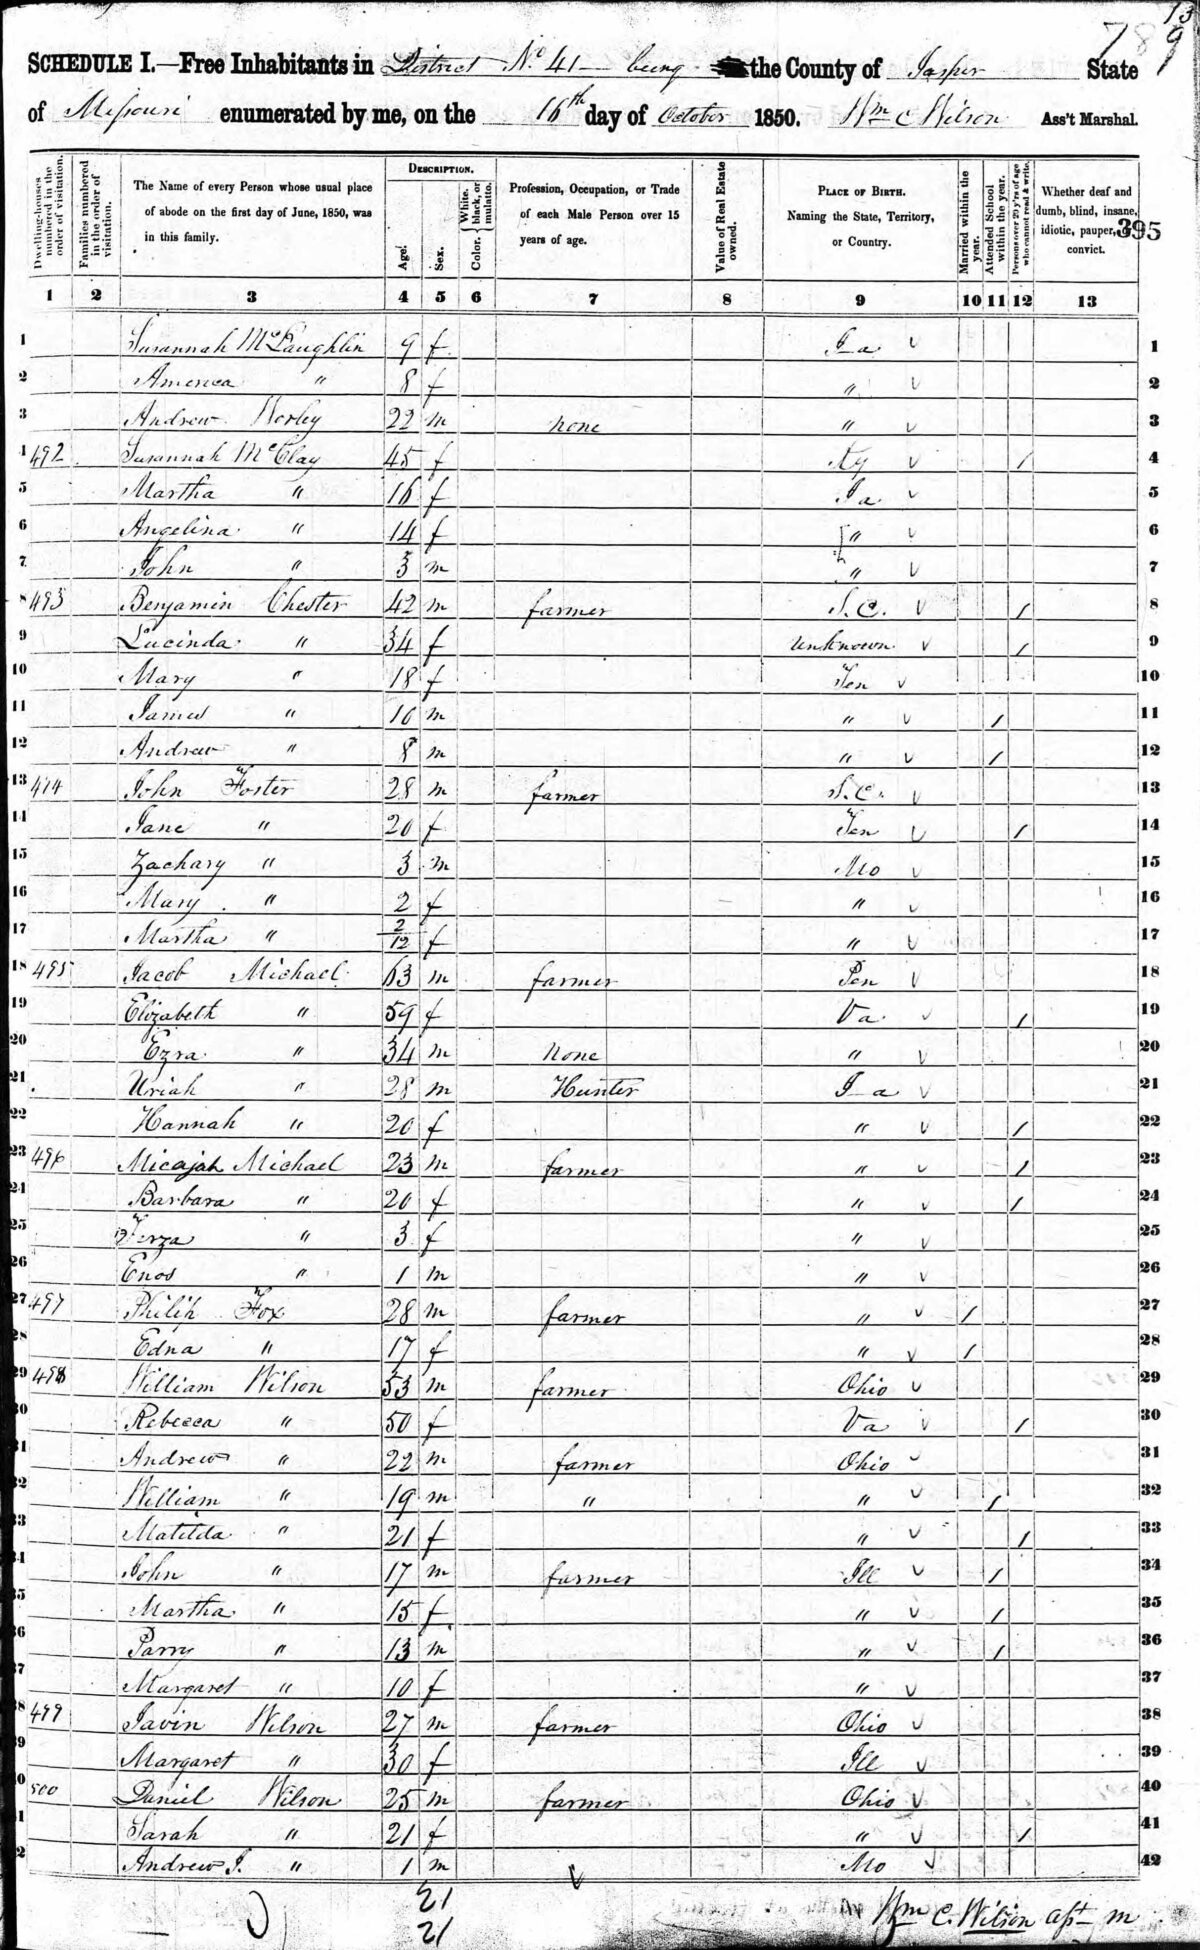 13
789
SCHEDULE I.—Free Inhabitants in District No 41 being the County of Jasper State
of Missouri enumerated by me, on the 16th day of October 1850. Wm C Wilson Ass't Marshal.
Dwelling-houses numbered in the order of visitation.
Families numbered in the order of visitation.
The Name of every Person whose usual place of abode on the first day of June, 1850, was in this family.
DESCRIPTION.
Age.
Sex.
Color. White, black, or mulatto.
Profession, Occupation, or Trade of each Male Person over 15 years of age.
Value of Real Estate owned.
PLACE OF BIRTH. Naming the State, Territory, or Country.
Married within the year.
Attended School within the year.
Persons over 20 y'rs of age who cannot read & write.
Whether deaf and dumb, blind, insane, idiotic, pauper, convict.
395
1 2 3 4 5 6 7 8 9 10 11 12 13
1 Susannah McLaughlin 9 f Ia 1
2 America " 8 f " 2
3 Andrew Worley 22 m none " 3
4 492 Susannah McClay 45 f Ky / 4
5 Martha " 16 f Ia 5
6 Angelina " 14 f " 6
7 John " 3 m " 7
8 493 Benjamin Chester 42 m farmer S.C. / 8
9 Lucinda " 34 f unknown / 9
10 Mary " 18 f Ten 10
11 James " 10 m " / 11
12 Andrew " 8 m " / 12
13 494 John Foster 28 m farmer S.C. 13
14 Jane " 20 f Ten / 14
15 Zachary " 3 m Mo 15
16 Mary " 2 f " 16
17 Martha " 2/12 f " 17
18 495 Jacob Michael 63 m farmer Pen 18
19 Elizabeth " 59 f Va / 19
20 Ezra " 34 m none " 20
21 Uriah " 28 m Hunter Ia 21
22 Hannah " 20 f " / 22
23 496 Micajah Michael 23 m farmer " / 23
24 Barbara " 20 f " / 24
25 Terza " 3 f " 25
26 Enos " 1 m " 26
27 497 Philip Fox 28 m farmer " / 27
28 Edna " 17 f " / 28
29 498 William Wilson 53 m farmer Ohio 29
30 Rebecca " 50 f Va / 30
31 Andrew " 22 m farmer Ohio 31
32 William " 19 m " " / 32
33 Matilda " 21 f " / 33
34 John " 17 m farmer Ill / 34
35 Martha " 15 f " / 35
36 Parry " 13 m " / 36
37 Margaret " 10 f " 37
38 499 Javin Wilson 27 m farmer Ohio 38
39 Margaret " 30 f Ill 39
40 500 Daniel Wilson 25 m farmer Ohio 40
41 Sarah " 21 f " / 41
42 Andrew J. " 1 m Mo 42
21
21
Wm C. Wilson asst m